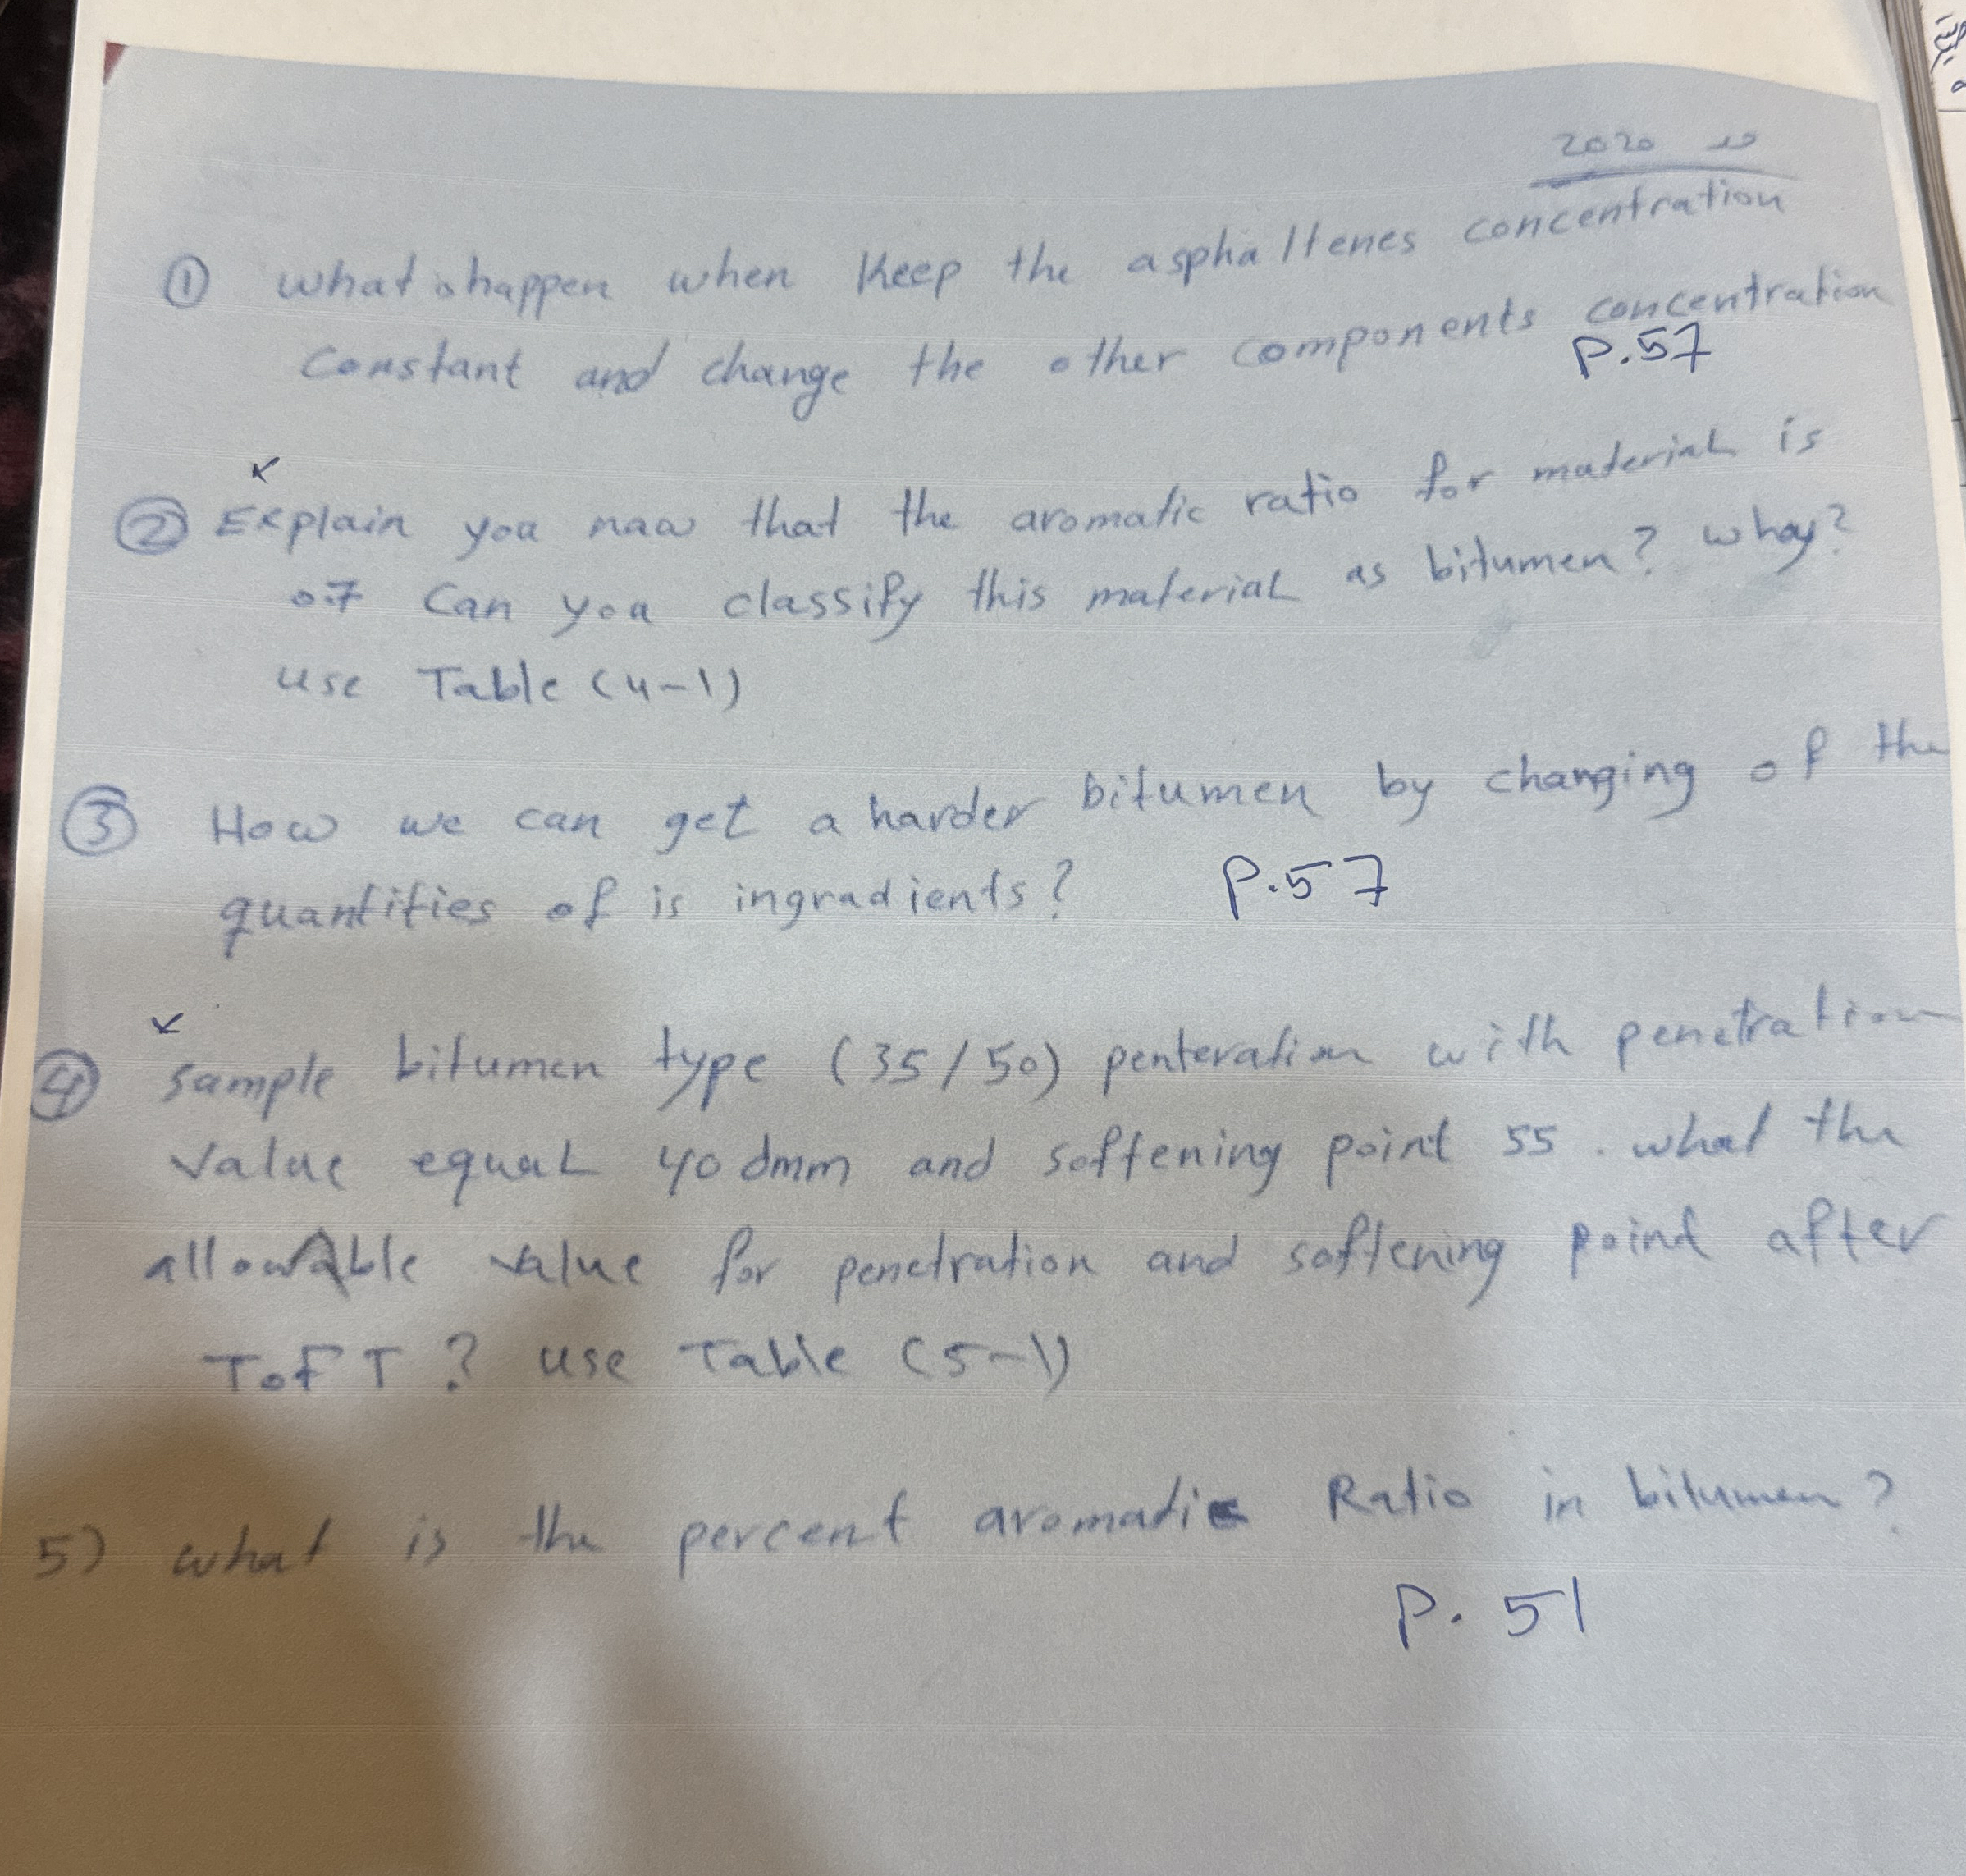 2020
① what happen when Keep the asphaltenes concentration
constant and change the other components concentration
P.57
② Explain you naw that the aromatic ratio for material is
0.7 Can you classify this material as bitumen? whay?
use Table (4-1)
③ How we can get a harder bitumen by changing of the
quantities of is ingradients? P.57
④ sample bitumen type (35/50) penteration with penetration
value equal 40 dmm and softening point 55. what the
allowable value for penetration and softening point after
TOFT? use Table (5-1)
5) what is the percent aromatic Ratio in bitumen?
P. 51